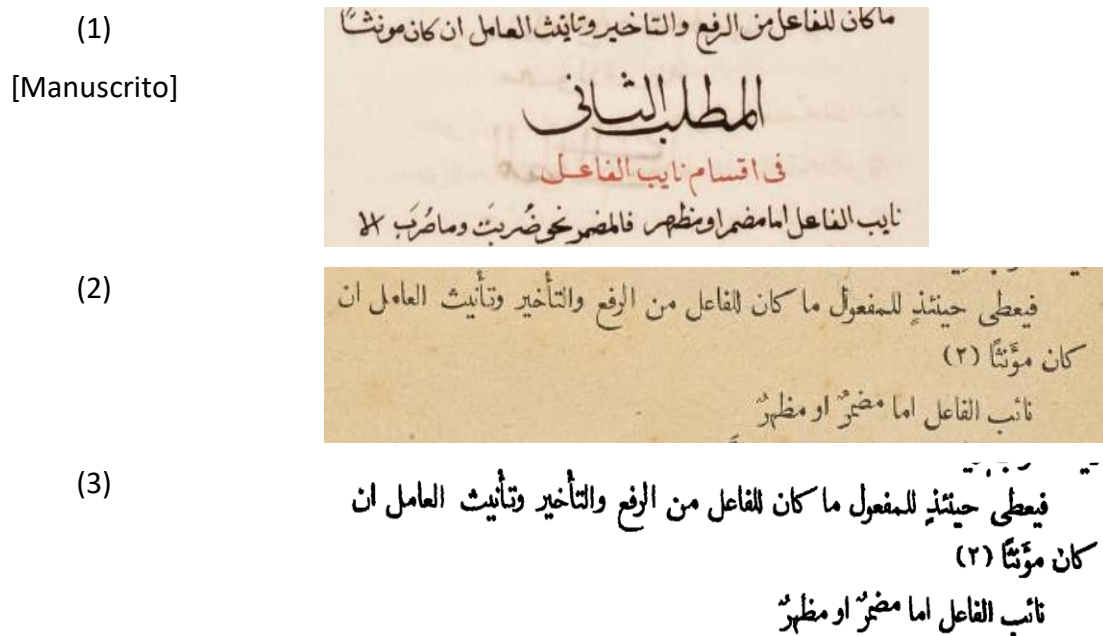 (1)
[Manuscrito]
ماكان للفاعل من الرفع والتاخير وتانيث العامل ان كان مونثًا
المطلب الثانى
فى اقسام نايب الفاعل
نايب الفاعل اما مضمر او مظهر فالمضمر نحو ضُربتَ وماضُرَب الا
(2)
فيعطى حينئذٍ للمفعول ما كان للفاعل من الرفع والتأخير وتأنيث العامل ان
كان مؤَنثًا (٢)
نائب الفاعل اما مضمرٌ او مظهرٌ
(3)
فيعطى حينئذٍ للمفعول ما كان للفاعل من الرفع والتأخير وتأنيث العامل ان
كان مؤَنثًا (٢)
نائب الفاعل اما مضمرٌ او مظهرٌ